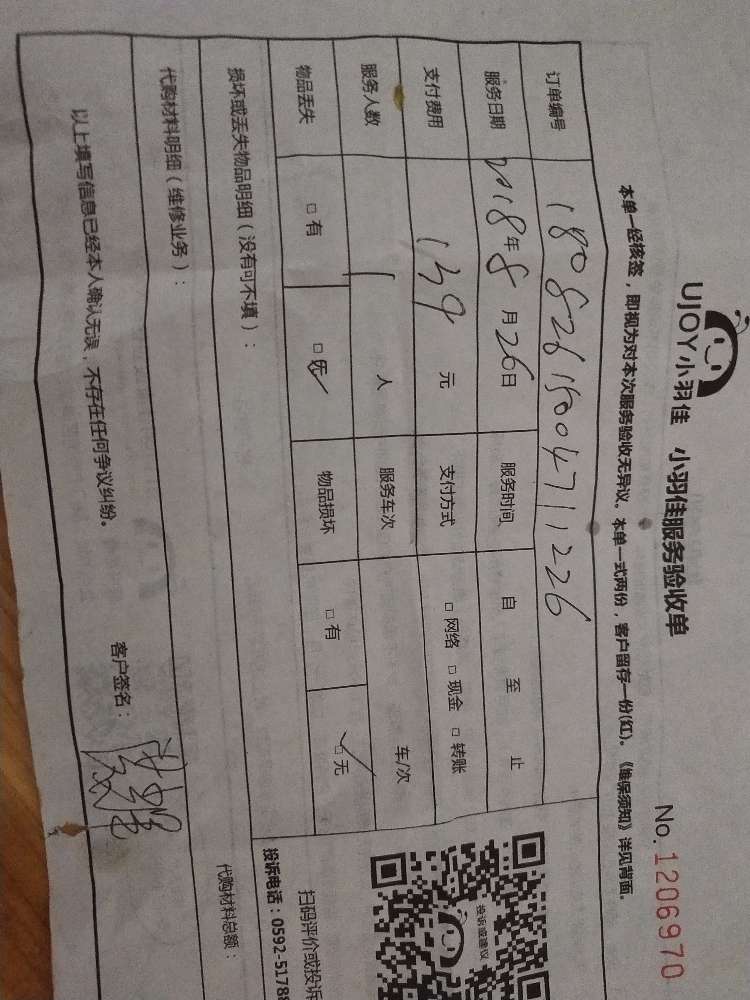 UJOY小羽佳 小羽佳服务验收单
No.1206970
本单一经核签，即视为对本次服务验收无异议。本单一式两份，客户留存一份(红)。《维保须知》详见背面。
订单编号 18082615004711226
服务日期 2018年8月26日 服务时间 自 至 止
支付费用 139元 支付方式 □网络 □现金 □转账
服务人数 1人 服务车次 车/次
物品丢失 □有 □无✓ 物品损坏 □有 □无✓
投诉或建议
扫码评价或投诉
投诉电话：0592-5178
损坏或丢失物品明细（没有可不填）：
代购材料明细（维修业务）：
代购材料总额：
以上填写信息已经本人确认无误，不存在任何争议纠纷。
客户签名：